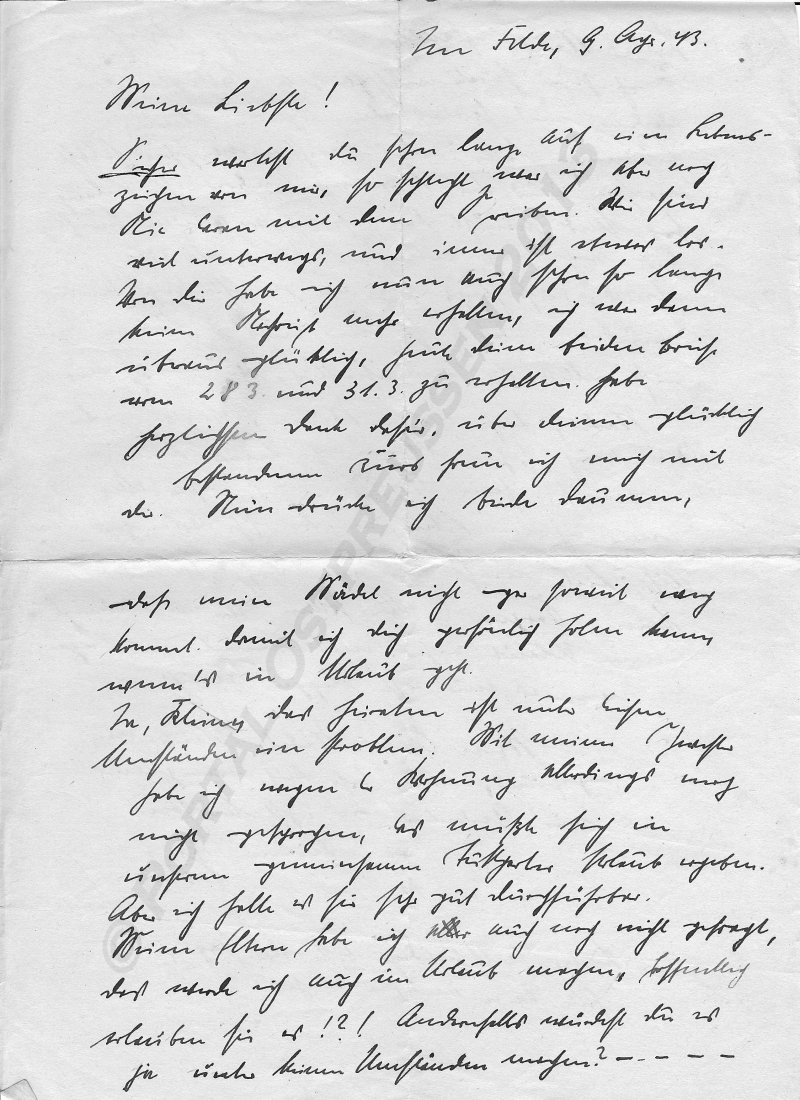 Im Felde, 9. Apr. 43.
Meine Liebste!
Sicher wartest du schon lange auf ein Lebens-
zeichen von mir, so schlecht war ich aber noch
nie daran mit dem Schreiben. Wir sind
viel unterwegs, und immer ist etwas los.
Von dir habe ich nun auch schon so lange
keine Nachricht mehr erhalten, ich war dann
überaus glücklich, heute deine beiden Briefe
vom 28.3. und 31.3. zu erhalten. Habe
herzlichsten Dank dafür, über deinen glücklich
bestandenen Kurs freue ich mich mit
dir. Nun drücke ich beide Daumen,
daß mein Mädel nicht gar soweit weg
kommt. damit ich dich persönlich holen kann,
wenn's in Urlaub geht.
Ja, Kleines, das Heiraten ist unter diesen
Umständen ein Problem. Mit meiner Schwester
habe ich wegen der Wohnung allerdings noch
nicht gesprochen, das müßte sich in
unserem gemeinsamen Stuttgarter Urlaub ergeben.
Aber ich halte es für sehr gut durchführbar.
Meine Eltern habe ich auch noch nicht gefragt,
das werde ich auch im Urlaub machen, hoffentlich
erlauben sie es!?! Andernfalls würdest du es
ja unter keinen Umständen machen? - - - - -
© PORTAL-OSTPREUSSEN 2013